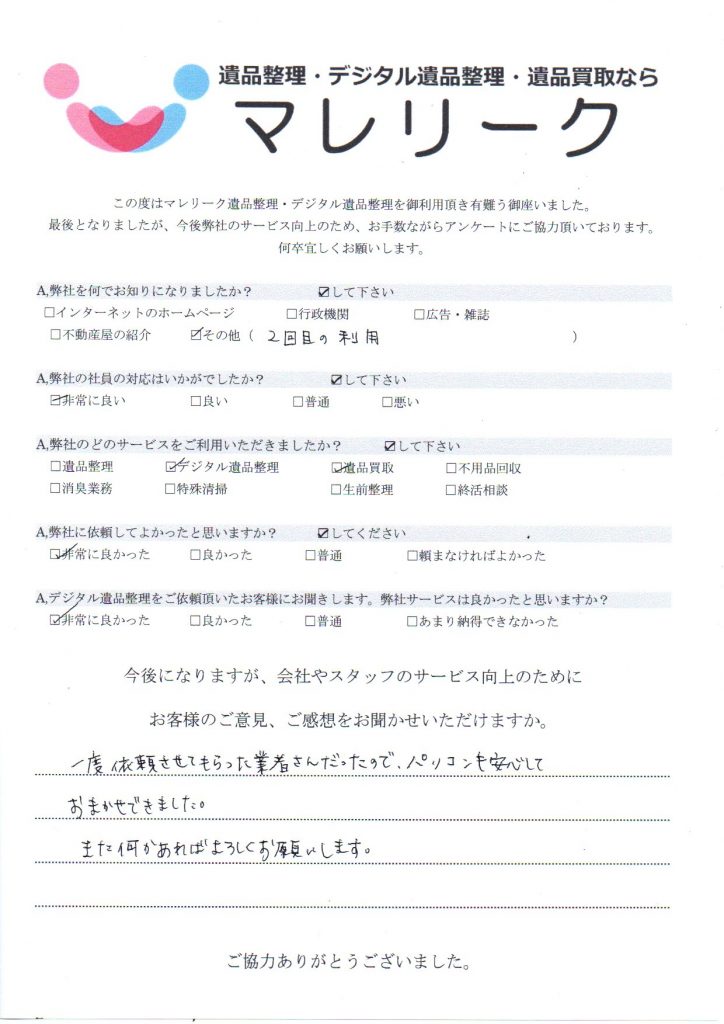 遺品整理・デジタル遺品整理・遺品買取なら
マレリーク
この度はマレリーク遺品整理・デジタル遺品整理を御利用頂き有難う御座いました。
最後となりましたが、今後弊社のサービス向上のため、お手数ながらアンケートにご協力頂いております。
何卒宜しくお願いします。
A,弊社を何でお知りになりましたか？ ☑して下さい
□インターネットのホームページ □行政機関 □広告・雑誌
□不動産屋の紹介 ☑その他（ 2回目の利用 ）
A,弊社の社員の対応はいかがでしたか？ ☑して下さい
☑非常に良い □良い □普通 □悪い
A,弊社のどのサービスをご利用いただきましたか？ ☑して下さい
□遺品整理 ☑デジタル遺品整理 ☑遺品買取 □不用品回収
□消臭業務 □特殊清掃 □生前整理 □終活相談
A,弊社に依頼してよかったと思いますか？ ☑してください
☑非常に良かった □良かった □普通 □頼まなければよかった
A,デジタル遺品整理をご依頼頂いたお客様にお聞きします。弊社サービスは良かったと思いますか？
☑非常に良かった □良かった □普通 □あまり納得できなかった
今後になりますが、会社やスタッフのサービス向上のために
お客様のご意見、ご感想をお聞かせいただけますか。
一度依頼させてもらった業者さんだったので、パソコンも安心して
おまかせできました。
また何かあればよろしくお願いします。
ご協力ありがとうございました。